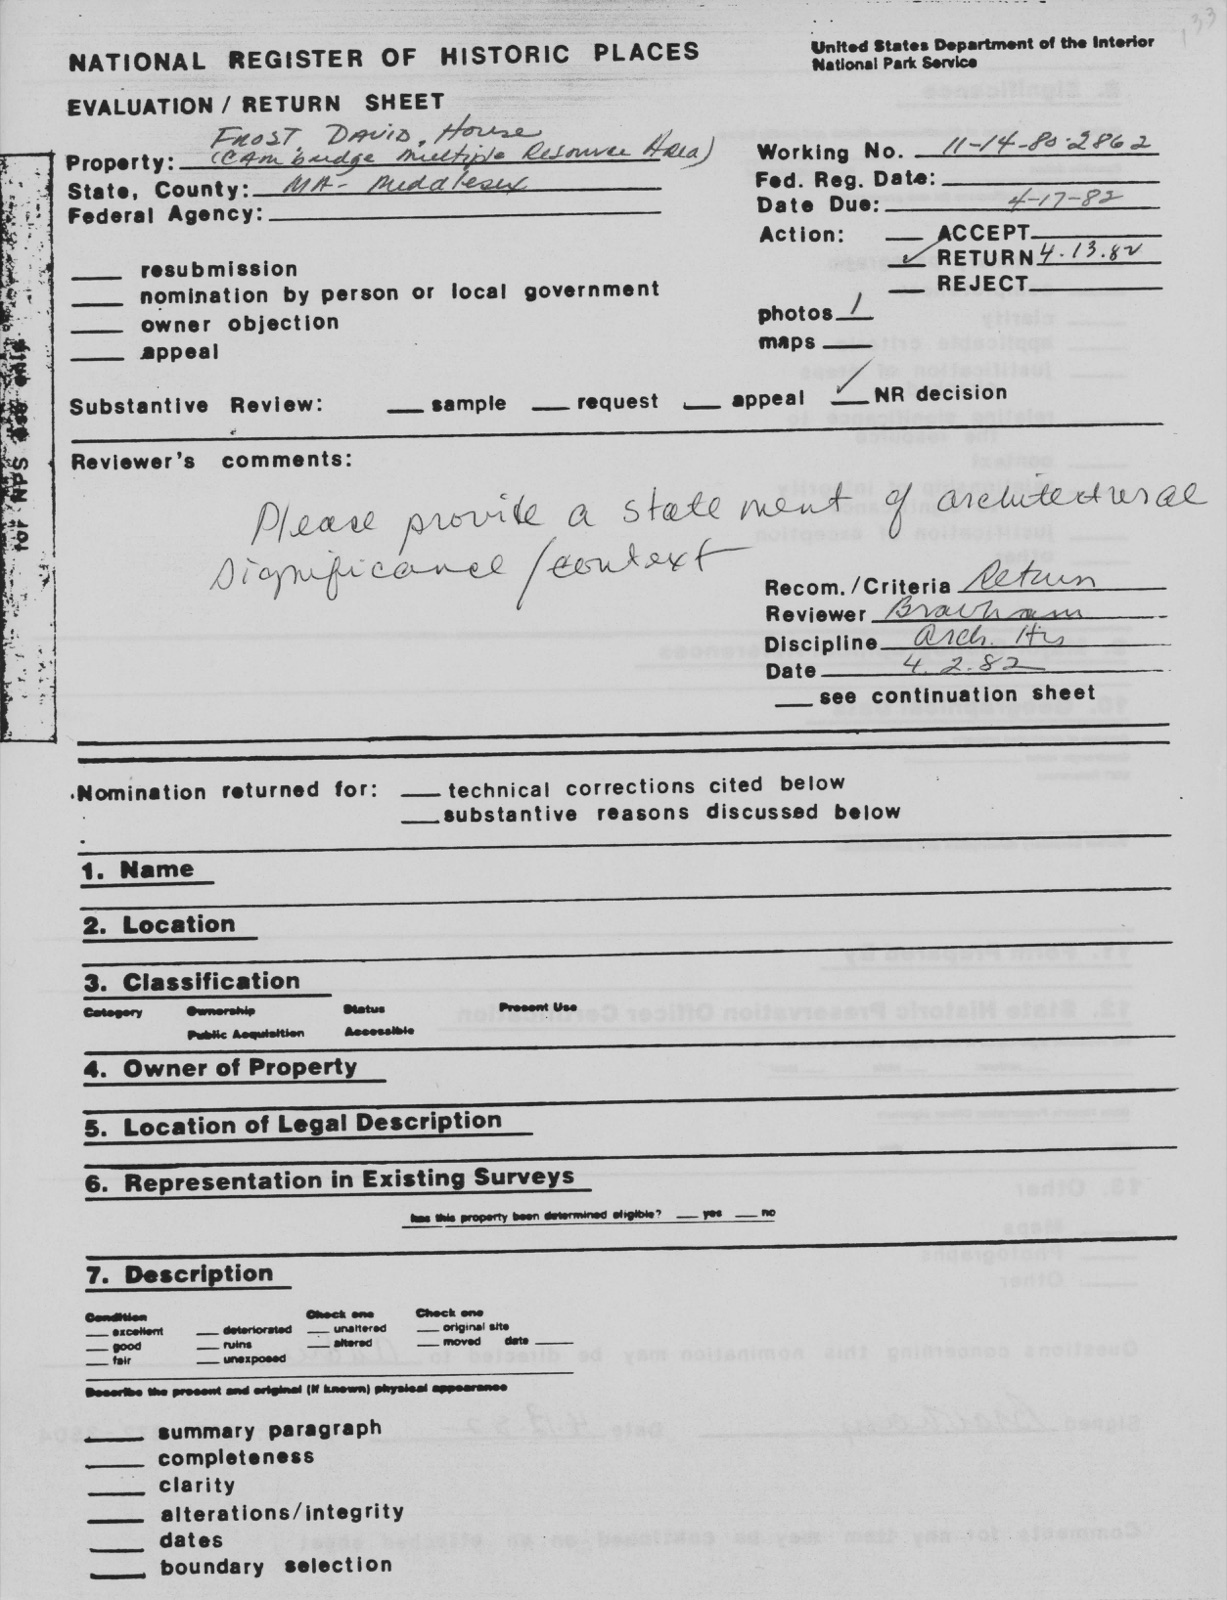 NATIONAL REGISTER OF HISTORIC PLACES
United States Department of the Interior
National Park Service
EVALUATION / RETURN SHEET
FROST, DAVID, House
Property: (CAmbridge Multiple Resource Area)
State, County: MA- Middlesex
Federal Agency:
Working No. 11-14-80-2862
Fed. Reg. Date:
Date Due: 4-17-82
Action: ACCEPT
✓ RETURN 4.13.82
REJECT
resubmission
nomination by person or local government
owner objection
appeal
photos 1
maps
Substantive Review: sample request appeal ✓ NR decision
for NPS use only
Reviewer's comments:
Please provide a statement of architectural
significance / context
Recom./Criteria Return
Reviewer
Discipline Arch. His
Date 4.2.82
see continuation sheet
Nomination returned for: technical corrections cited below
substantive reasons discussed below
1. Name
2. Location
3. Classification
Category Ownership Status Present Use
Public Acquisition Accessible
4. Owner of Property
5. Location of Legal Description
6. Representation in Existing Surveys
has this property been determined eligible? yes no
7. Description
Condition Check one Check one
excellent deteriorated unaltered original site
good ruins altered moved date
fair unexposed
Describe the present and original (if known) physical appearance
summary paragraph
completeness
clarity
alterations/integrity
dates
boundary selection